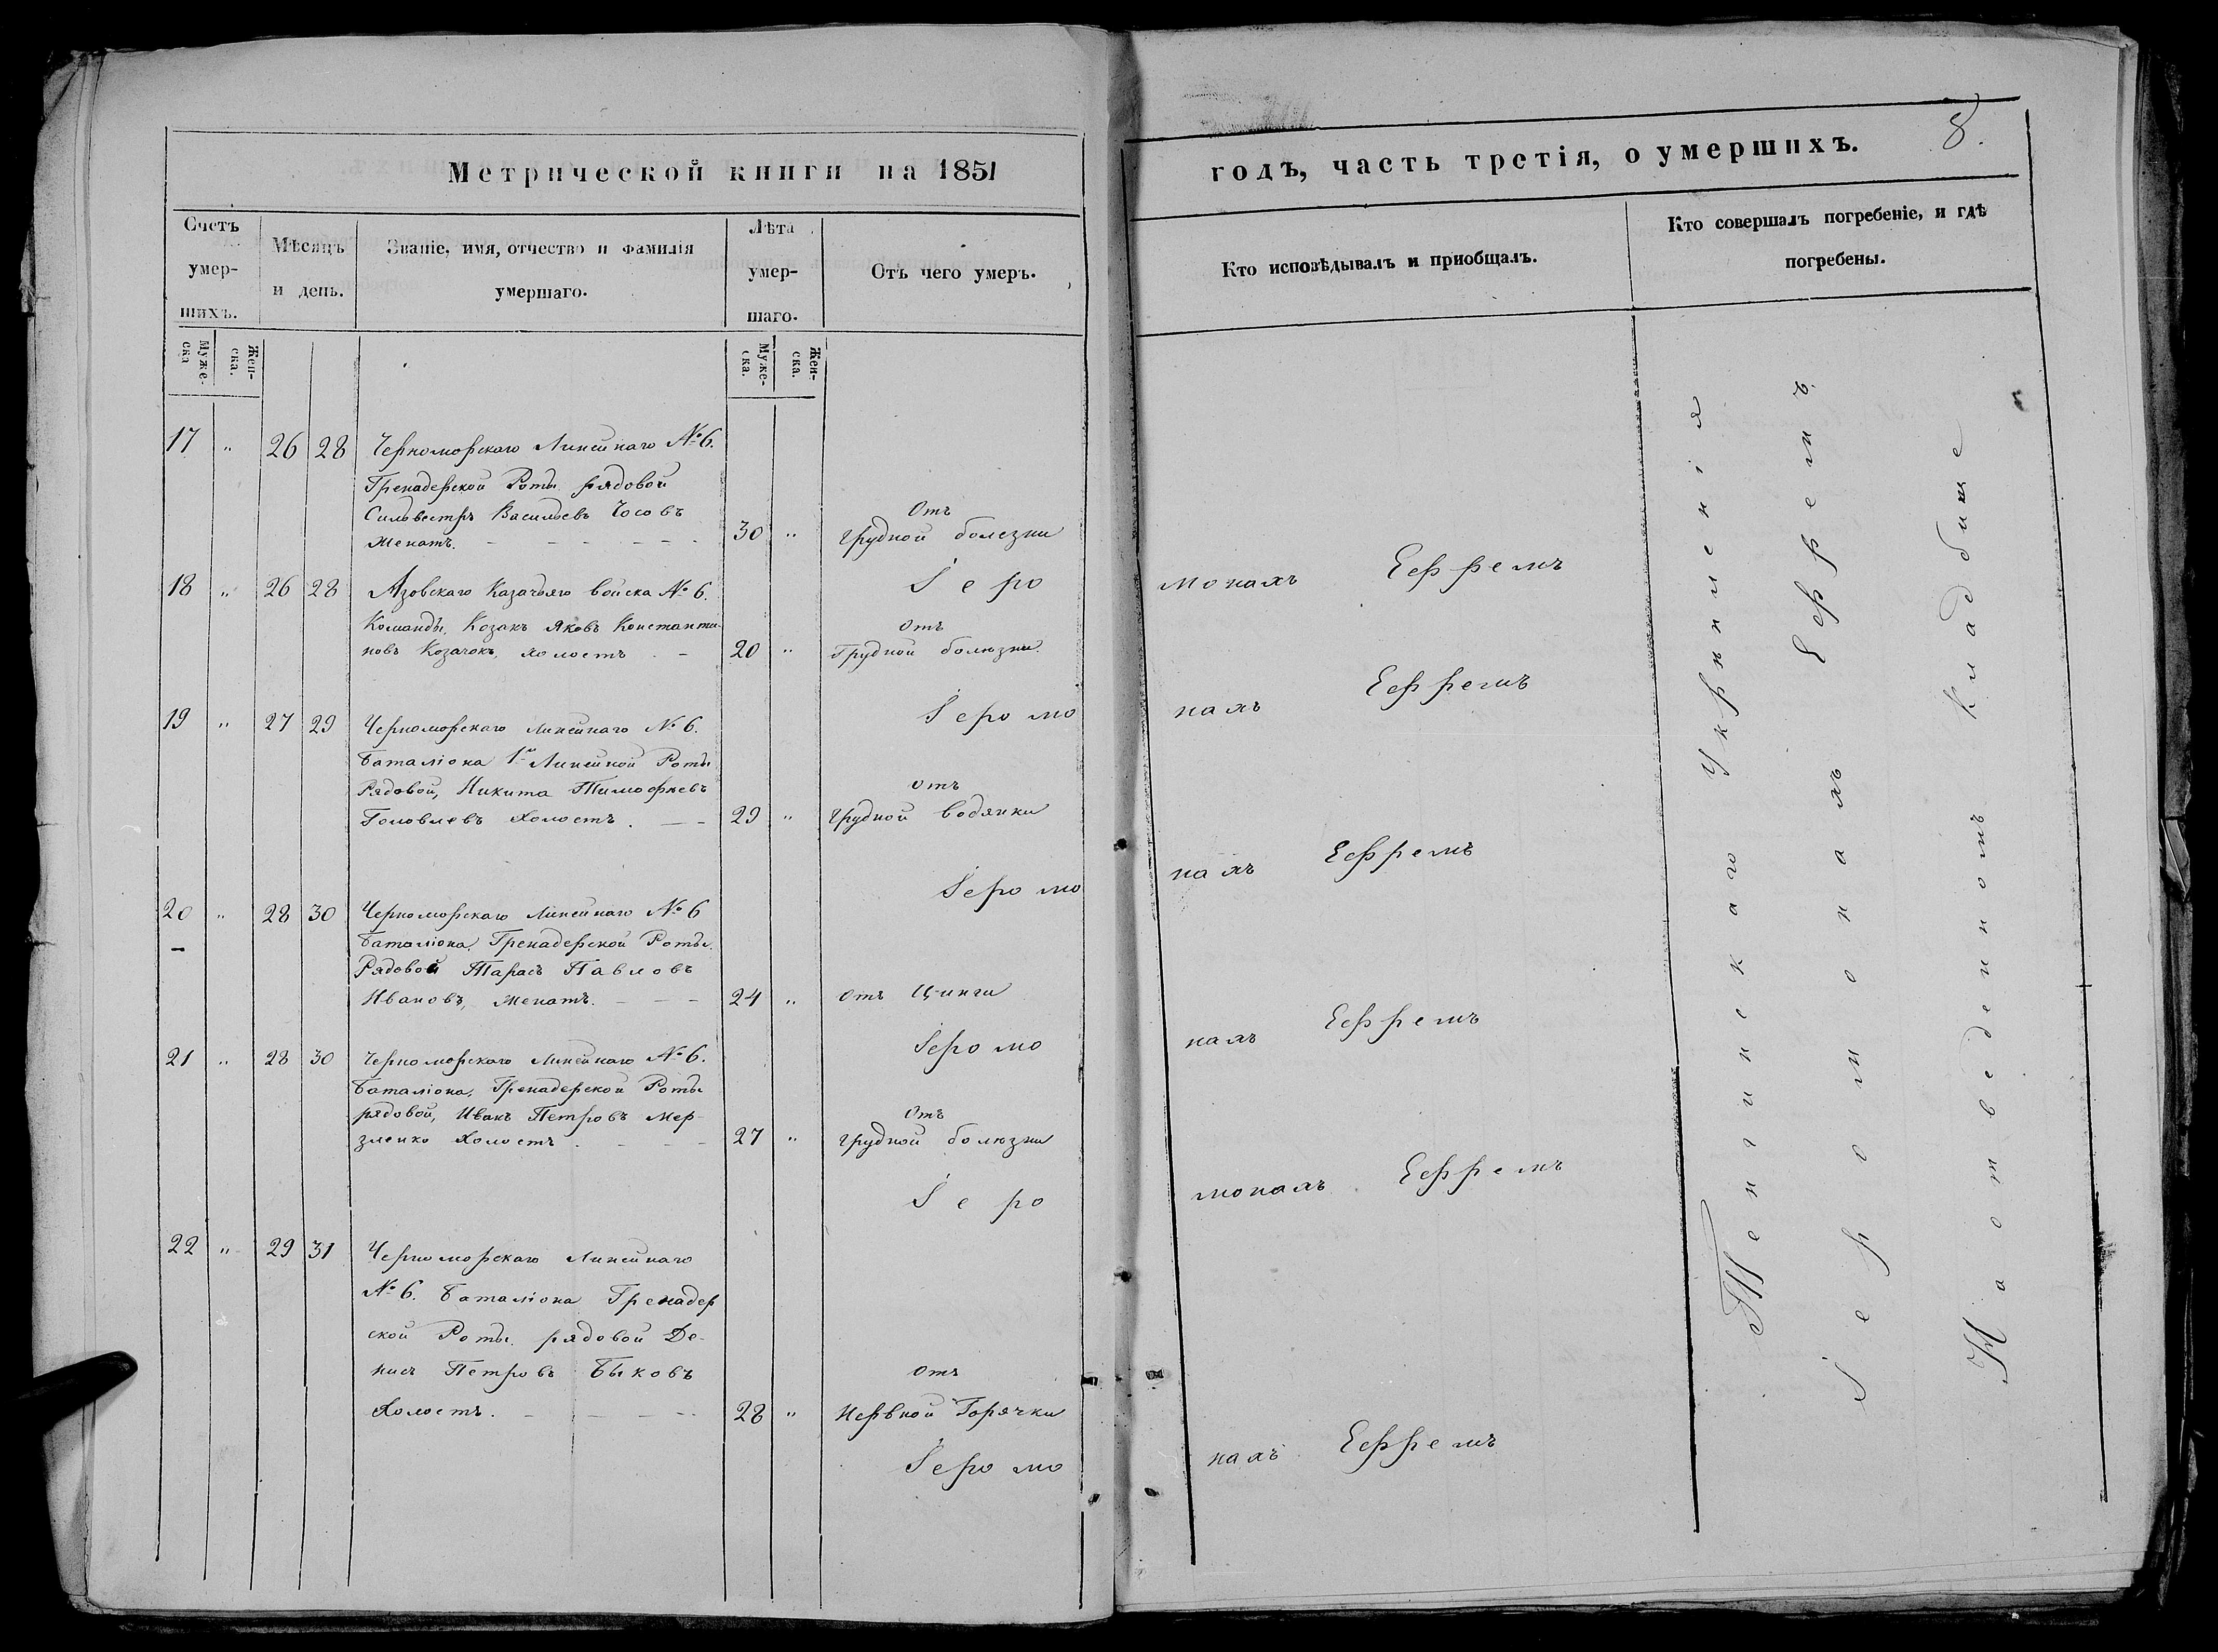 Метрической книги на 1851
годъ, часть третія, о умершихъ.
8.
Счетъ умер-шихъ.
Мѣсяцъ и день.
Званіе, имя, отчество и фамилія умершаго.
Лѣта умер-шаго.
Отъ чего умеръ.
Кто исповѣдывалъ и приобщалъ.
Кто совершалъ погребеніе, и гдѣ погребены.
Муже-ска
Жен-ска.
Муже-ска.
Жен-ска.
17 " 26 28 Черноморскаго Линейнаго № 6.
Гренадерской Роты рядовой
Сильвестръ Васильевъ Чосовъ
Женатъ. 30 " Отъ грудной болезни
Іеромонахъ Ефремъ
18 " 26 28 Азовскаго Казачьяго войска № 6.
Команды, Козакъ Яковъ Константи-
новъ Козачокъ, холостъ 20 " Отъ Грудной болюзни.
Іеромонахъ Ефремъ
19 " 27 29 Черноморскаго Линейнаго № 6.
Баталіона 1й Линейной Роты
Рядовой, Никита Тимофеевъ
Головлевъ Холостъ. 29 " отъ грудной водянки
Іеромонахъ Ефремъ
20 " 28 30 Черноморскаго Линейнаго № 6
Баталіона, Гренадерской Роты.
Рядовой Тарасъ Павловъ
Ивановъ, Женатъ. 24 " отъ Цинги
Іеромонахъ Ефремъ
21 " 28 30 Черноморскаго Линейнаго № 6.
Баталіона, Гренадерской Роты
рядовой, Иванъ Петровъ Мер-
зленко Холостъ. 27 " Отъ грудной болюзни
Іеромонахъ Ефремъ
22 " 29 31 Черноморскаго Линейнаго
№ 6. Баталіона Гренадер
ской Роты. рядовой Де-
нисъ Петровъ Быковъ
Холостъ. 28 " Отъ Нервной Горячки
Іеромонахъ Ефремъ
Тенгинскаго Укрипленія
Іеромонахъ Ефремъ.
На отведенномъ кладбище